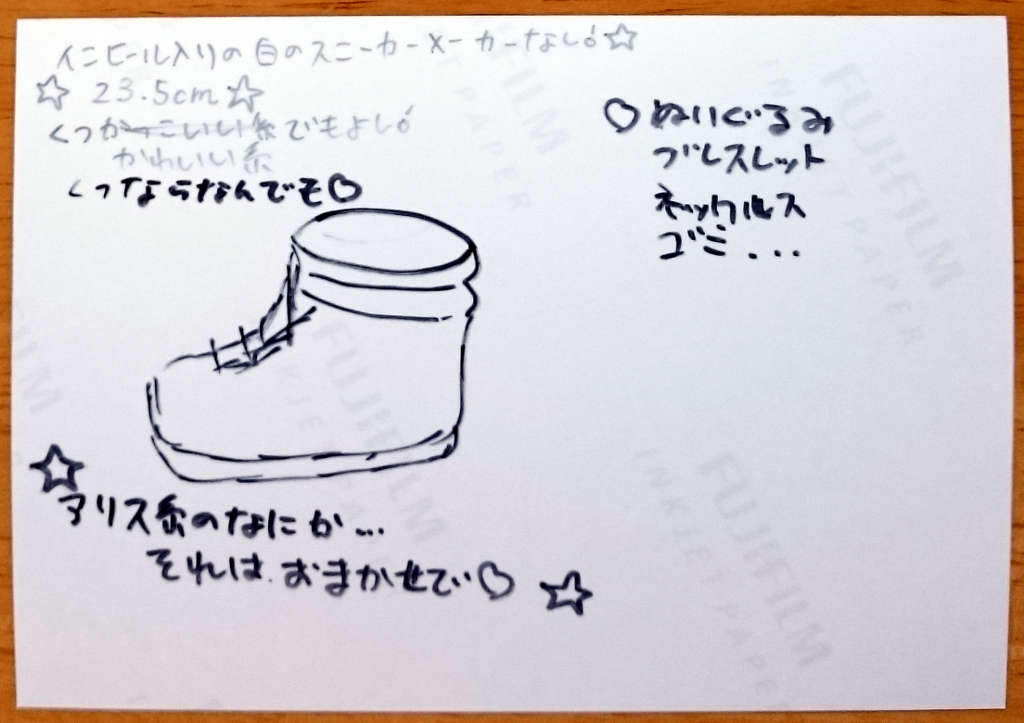 インヒール入りの白のスニーカーメーカーなし！☆
☆23.5cm☆
くつかっこいい系でもよし！
かわいい系
くつならなんでも♡
♡ぬいぐるみ
ブレスレット
ネックルス
ゴミ...
☆
アリス系のなにか...
それは、おまかせでぃ♡☆
FUJIFILM
INKJET PAPER
FUJIFILM
INKJET PAPER
FUJIFILM
INKJET PAPER
FUJIFILM
INKJET PAPER